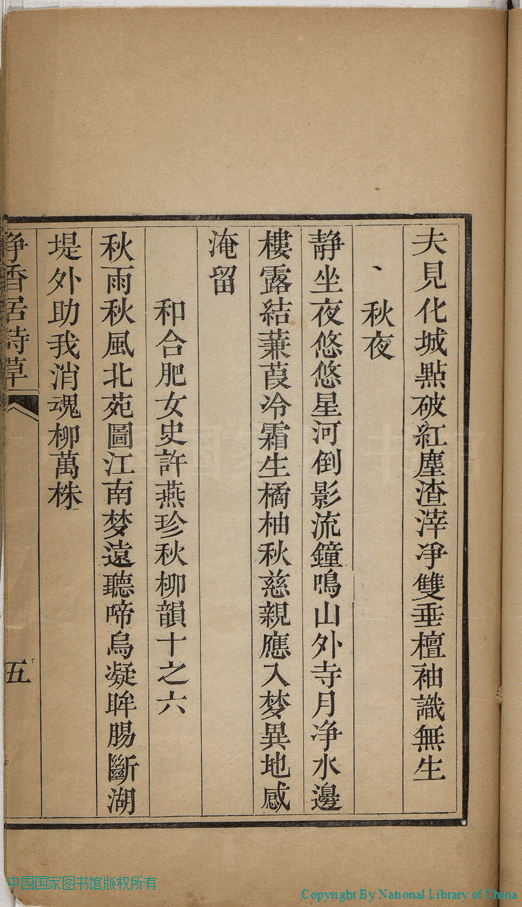 夫見化城點破紅塵渣滓凈雙垂檀袖識無生
秋夜
靜坐夜悠悠星河倒影流鐘鳴山外寺月凈水邊
樓露結蒹葭冷霜生橘柚秋慈親應入梦異地感
淹留
和合肥女史許燕珍秋柳韻十之六
秋雨秋風北苑圖江南梦遠聽啼烏凝眸腸斷湖
堤外助我消魂柳萬株
淨香居詩草
五
中国国家图书馆版权所有
Copyright By National Library of China